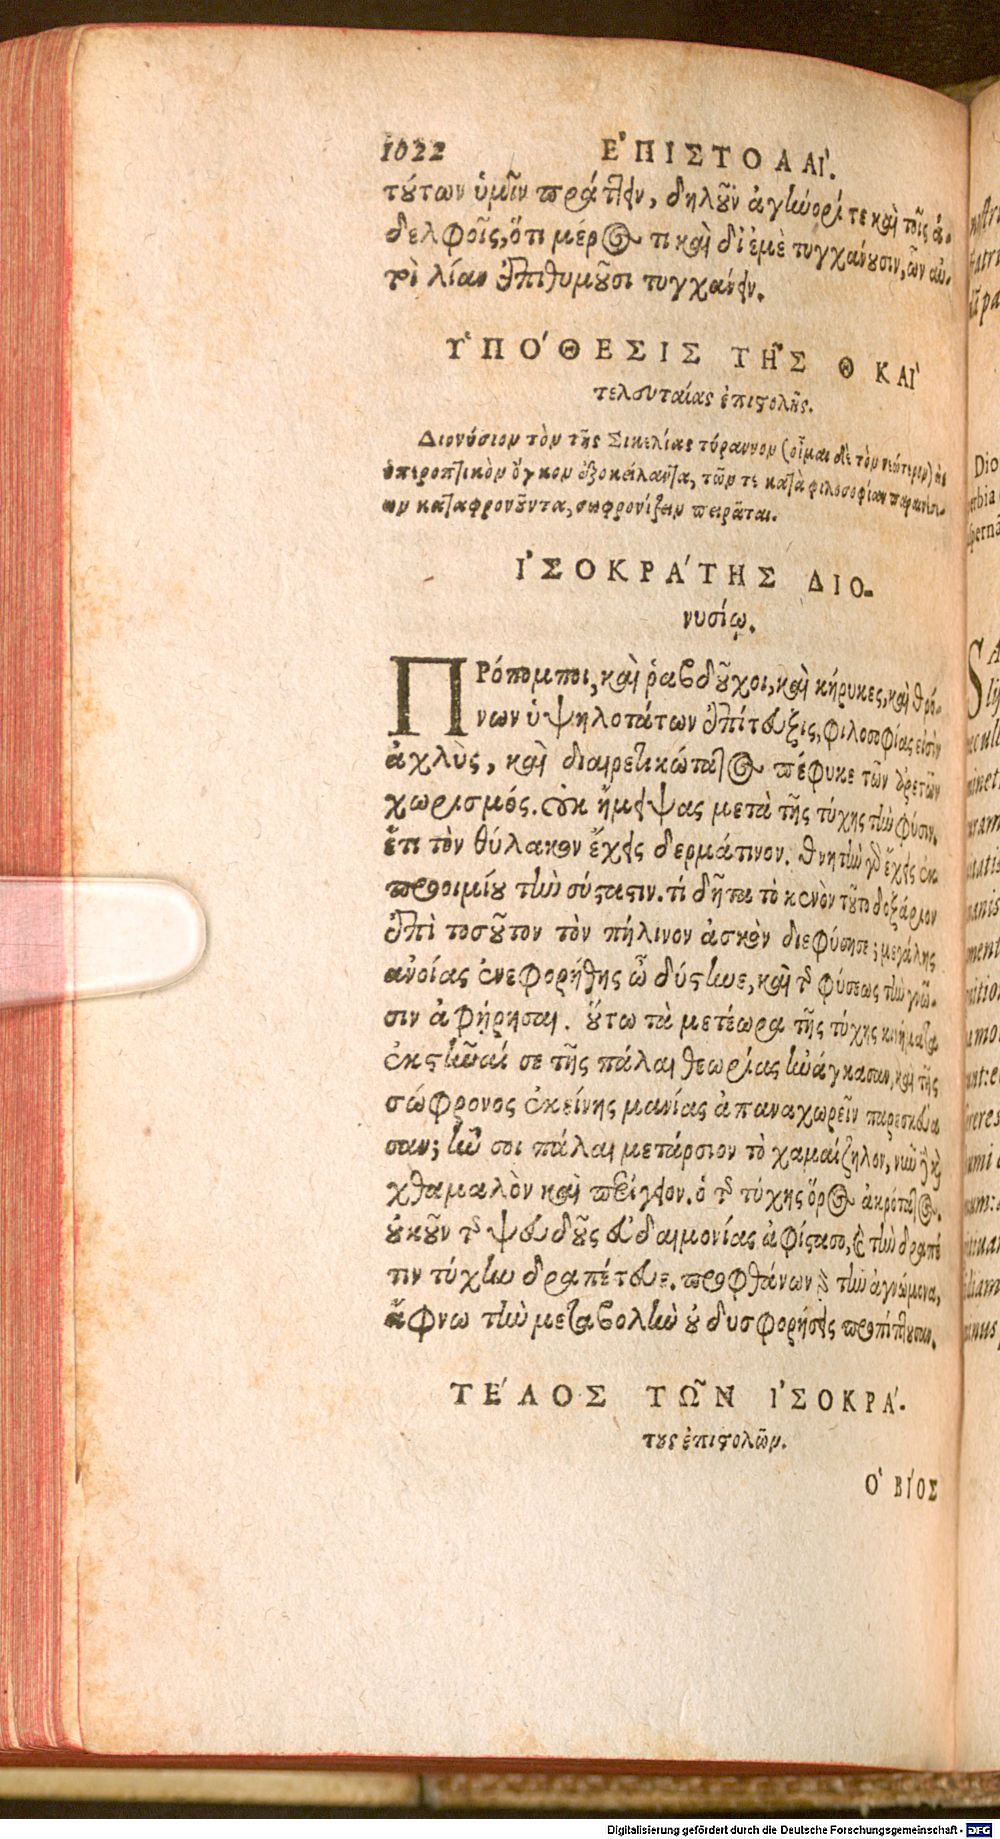 1022 ΕΠΙΣΤΟΛΑΙ.
τούτων ὑμῖν πράττειν, δηλοῦν ἀγήνορί τε καὶ τοῖς ἀ-
δελφοῖς, ὅτι μέρος τι καὶ δι' ἐμὲ τυγχάνουσιν, ὧν αὐ-
τοὶ λίαν ἐπιθυμοῦσι τυγχάνειν.
ΥΠΟ'ΘΕΣΙΣ ΤΗ͂Σ Θ ΚΑΙ'
τελευταίας ἐπιστολῆς.
Διονύσιον τὸν τῆς Σικελίας τύραννον (οἶμαι δὲ τὸν νεώτερον) εἰς
ὑπεροπτικὸν ὄγκον ἐξοκείλαντα, τῶν τε κατὰ φιλοσοφίαν παραινέσε-
ων καταφρονοῦντα, σωφρονίζειν πειρᾶται.
ἸΣΟΚΡΑ'ΤΗΣ ΔΙΟ-
νυσίῳ.
ΠΡόπομποι, καὶ ῥαβδοῦχοι, καὶ κήρυκες, καὶ θρό-
νων ὑψηλοτάτων ἐπίτευξις, φιλοσοφίας εἰσὶν
ἀχλὺς, καὶ διαιρετικώτατος πέφυκε τῶν ἀρετῶν
χωρισμός. οὐκ ἤμειψας μετὰ τῆς τύχης τὴν φύσιν.
ἔτι τὸν θύλακον ἔχεις δερμάτινον. θνητὴν γὰρ ἔχεις ἐκ
προοιμίου τὴν σύστασιν. τί δῆτα τὸ κενὸν τοῦτο δοξάριον
ἐπὶ τοσοῦτον τὸν πήλινον ἀσκὸν διεφύσησε; μεγάλης
ἀνοίας ἐνεφορήθης ὦ δύστηνε, καὶ τῆς φύσεως τὴν γνῶ-
σιν ἀφῄρησαι. οὕτω τὰ μετέωρα τῆς τύχης κινήματα
ἐκστῆναί σε τῆς πάλαι θεωρίας ἠνάγκασαν, καὶ τῆς
σώφρονος ἐκείνης μανίας ἀπαναχωρεῖν παρεσκεύα
σαν; ἦν σοι πάλαι μετάρσιον τὸ χαμαίζηλον, νῦν δὲ καὶ
χθαμαλὸν καὶ περίγειον. ὁ τῆς τύχης ὅρος ἀκρότατος.
οὐκοῦν τῆς ψευδοῦς εὐδαιμονίας ἀφίστασο, καὶ τὴν δραπέ
τιν τύχην δραπέτευε. προφθάνων γὰρ τὴν ἀγνώμονα,
ἄφνω τὴν μεταβολὴν οὐ δυσφορήσεις προσπίπτουσαν.
ΤΕ'ΛΟΣ ΤΩ͂Ν ἸΣΟΚΡΑ'-
τους ἐπιστολῶν.
Ὁ ΒΙ'ΟΣ
Digitalisierung gefördert durch die Deutsche Forschungsgemeinschaft - DFG